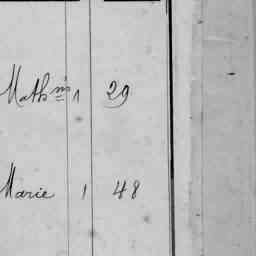 Mathin 1 29
Marie 1 48